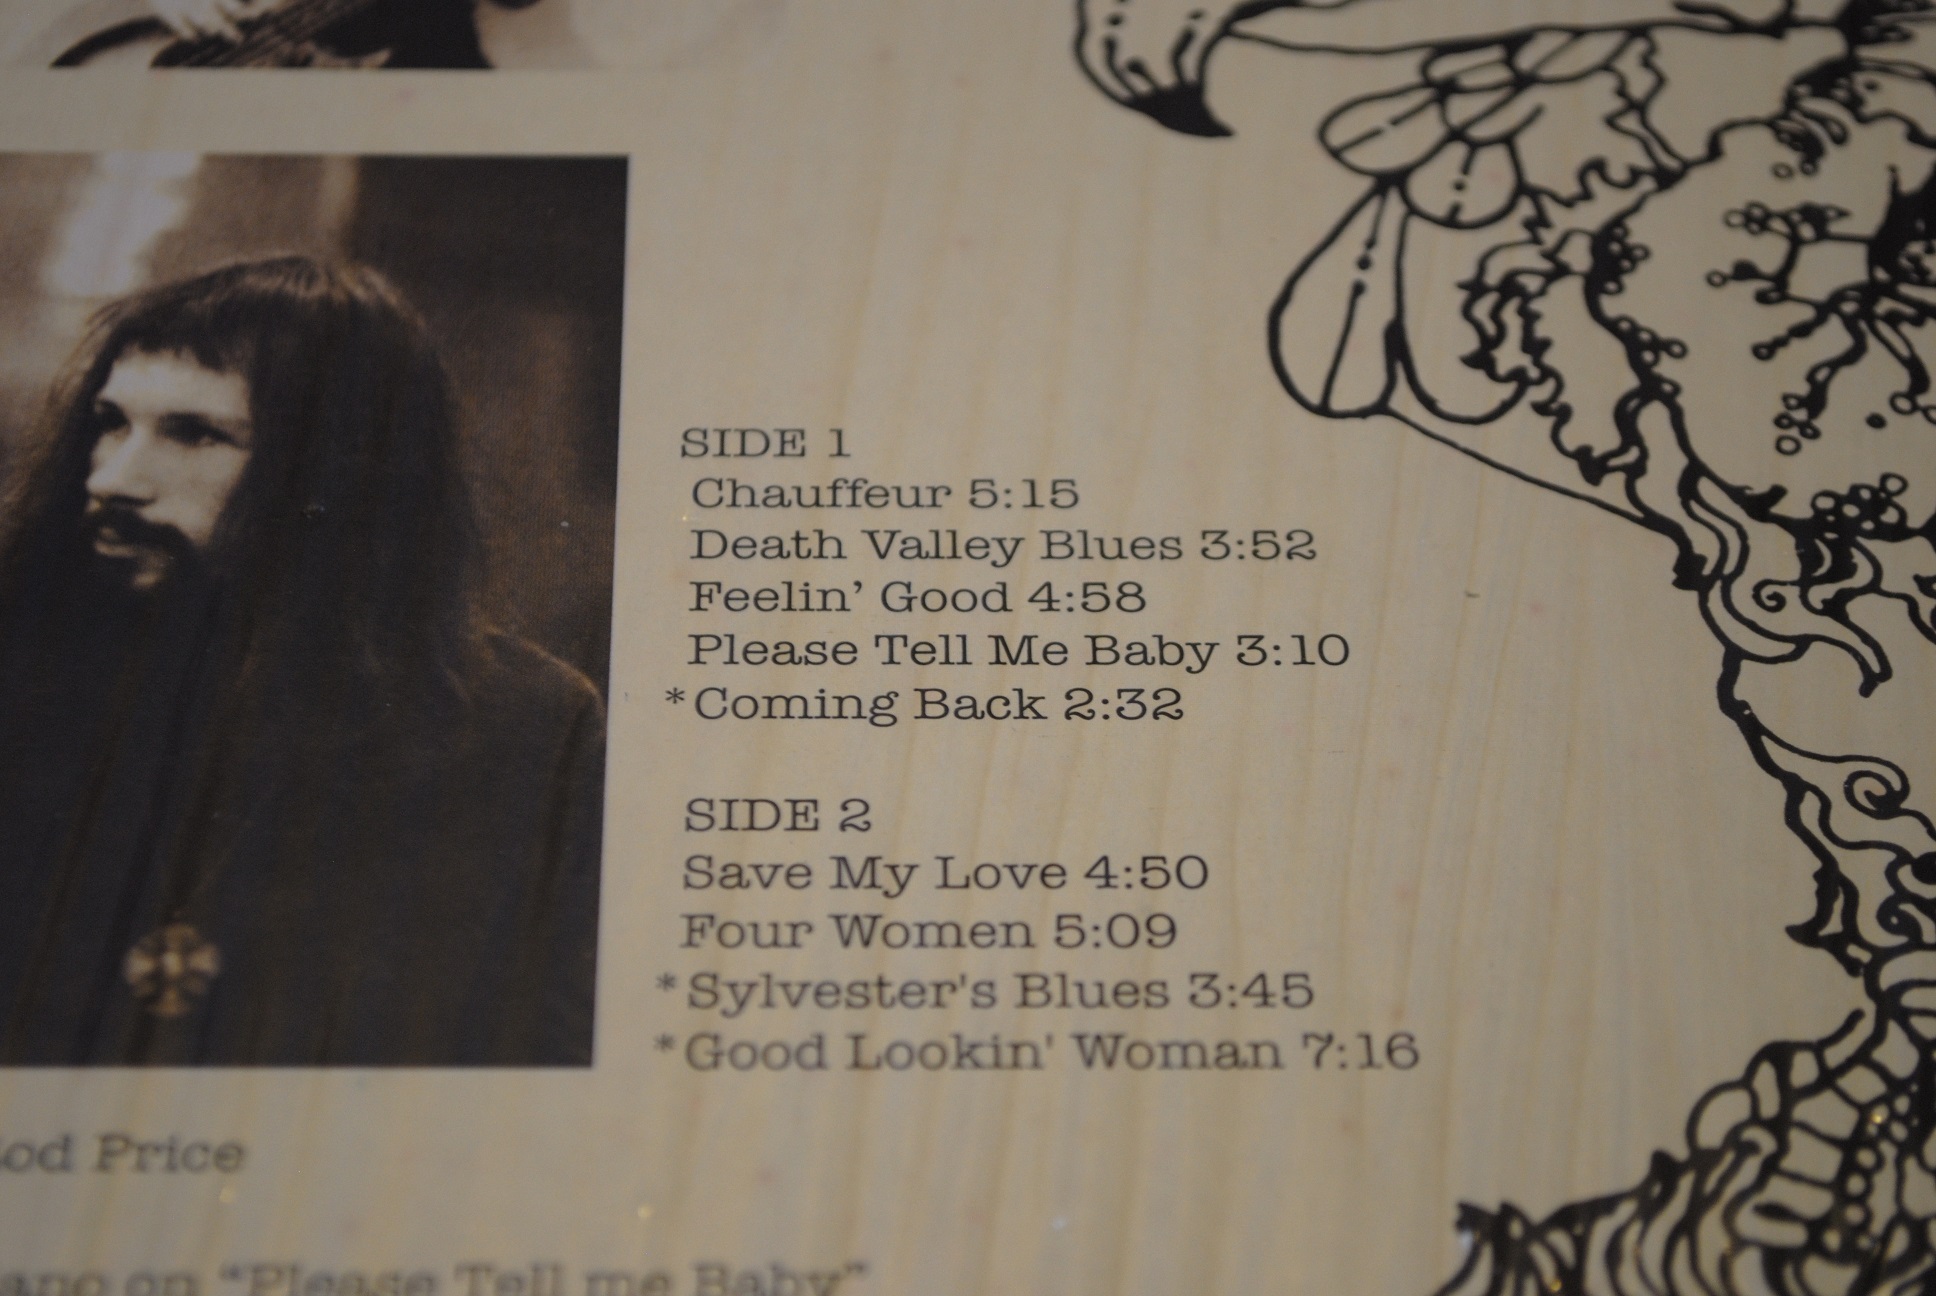 SIDE 1
Chauffeur 5:15
Death Valley Blues 3:52
Feelin’ Good 4:58
Please Tell Me Baby 3:10
*Coming Back 2:32
SIDE 2
Save My Love 4:50
Four Women 5:09
*Sylvester's Blues 3:45
*Good Lookin' Woman 7:16
Price
on “Please Tell me Baby”